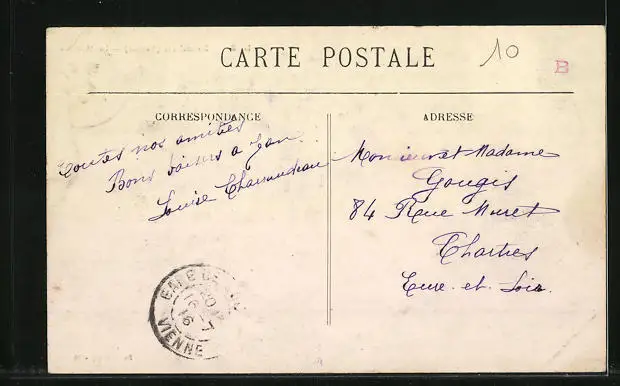 CARTE POSTALE
10
B
CORRESPONDANCE
ADRESSE
Toutes nos amitiés
Bons baisers a Jean
Louise
Monsieur et Madame
Gougis
84 Rue Muret
Chartres
Eure-et-Loir
GARE DE
16-7
16
VIENNE